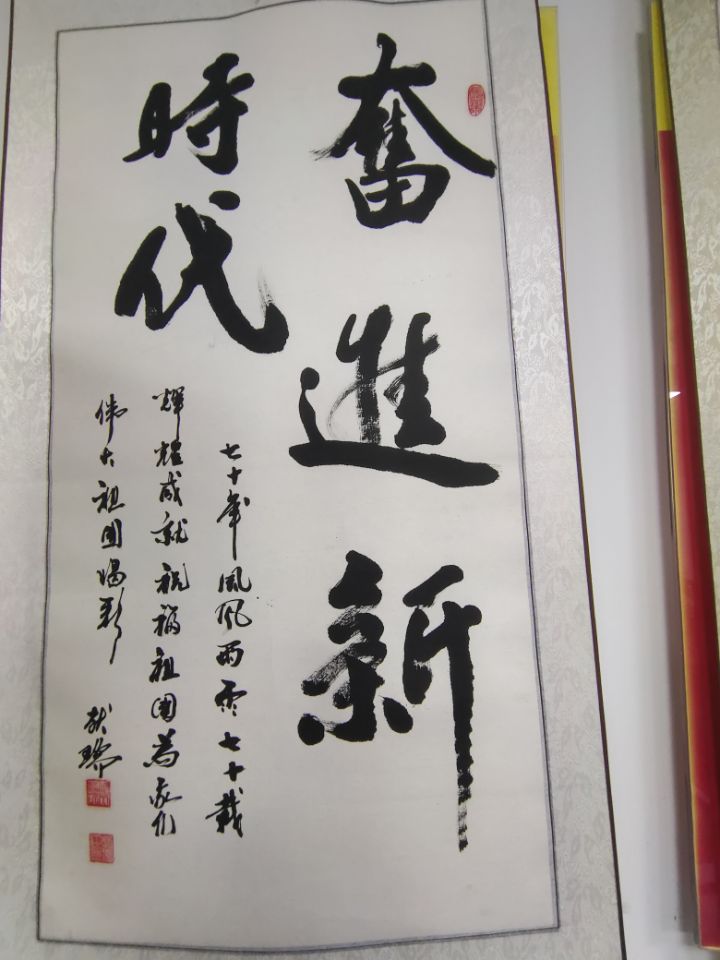 奮進新
時代
七十年風風雨雨七十載
輝煌成就祝福祖國為我们
偉大祖國喝彩